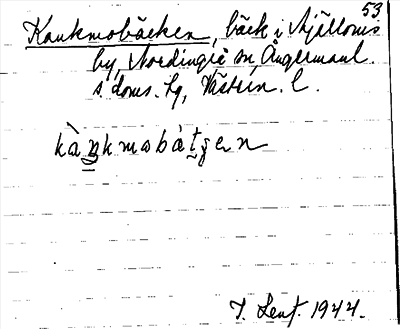 53
Kankmobäcken, bäck i Mjälloms
by, Nordingrå sn, Ångermanl.
s. doms. hg, Västern. l.
kànkmobàtʒen
J. Lent. 1944.